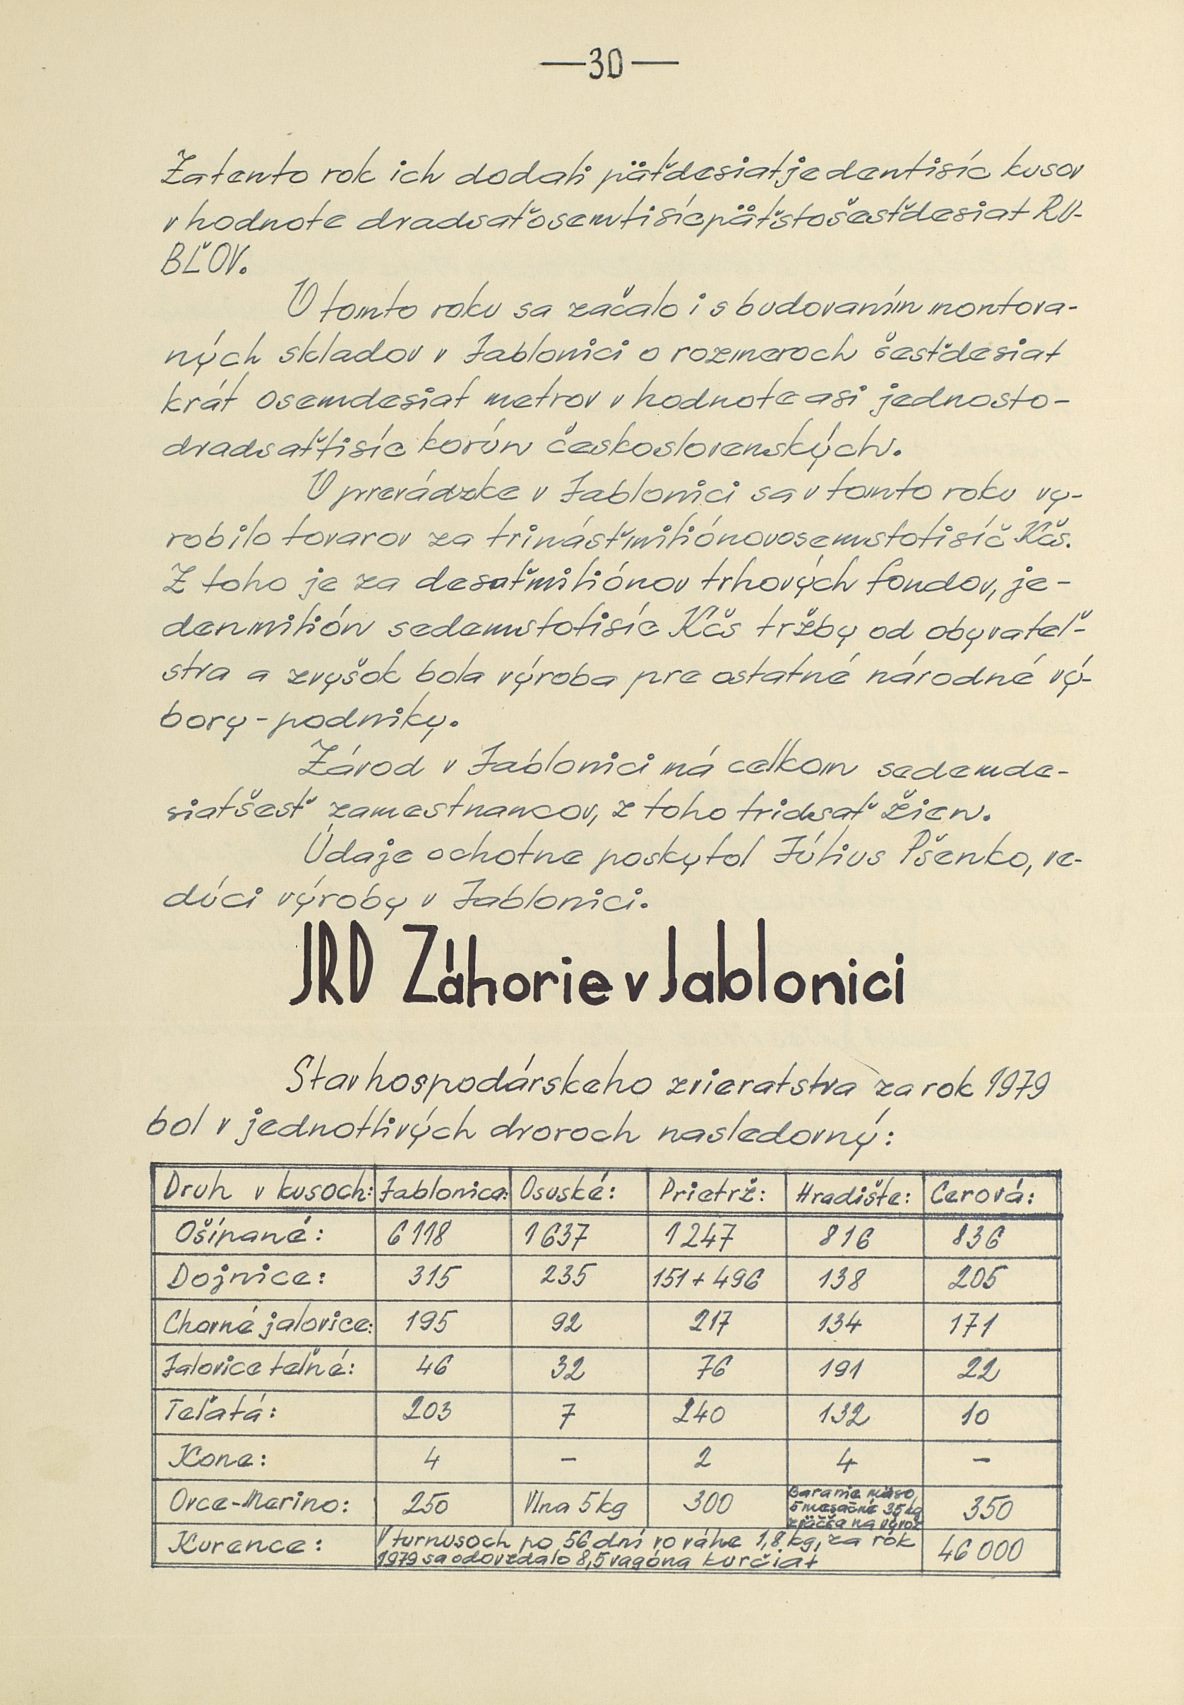 —30—
Za tento rok ich dodali päťdesiatjedentisíc kusov
v hodnote dvadsaťosemtisícpäťstošesťdesiat RU-
BĽOV.
V tomto roku sa začalo i s budovaním montova-
ných skladov v Jablonici o rozmeroch šesťdesiat
krát osemdesiat metrov v hodnote asi jednosto-
dvadsaťtisíc korún československých.
V prevádzke v Jablonici sa v tomto roku vy-
robilo tovarov za trinásťmiliónovosemstotisíč Kčs.
Z toho je za desaťmiliónov trhových fondov, je-
denmilión sedemstotisíc Kčs tržby od obyvateľ-
stva a zvyšok bola výroba pre ostatné národné vý-
bory - podniky.
Závod v Jablonici má celkom sedemde-
siatšesť zamestnancov, z toho tridsať žien.
Údaje ochotne poskytol Július Pšenko, ve-
dúci výroby v Jablonici.
JRD Záhorie v Jablonici
Stav hospodárskeho zvieratstva za rok 1979
bol v jednotlivých dvoroch nasledovný:
Druh v kusoch: Jablonica: Osuské: Prietrž: Hradište: Cerová:
Ošípané: 6118 1637 1247 816 836
Dojnice: 315 235 151 + 496 138 205
Chovné jalovice: 195 92 217 134 171
Jalovice teľné: 46 32 76 191 22
Teľatá: 203 7 240 132 10
Kone: 4 – 2 4 –
Ovce-Merino: 250 Vlna 5 kg 300 Baranie mäso, 350
5 mesačné 35 kg
zväčša na vývoz
Kurence: V turnusoch po 56 dní vo váhe 1,8 kg, za rok 46 000
1979 sa odovzdalo 8,5 vagóna kurčiat